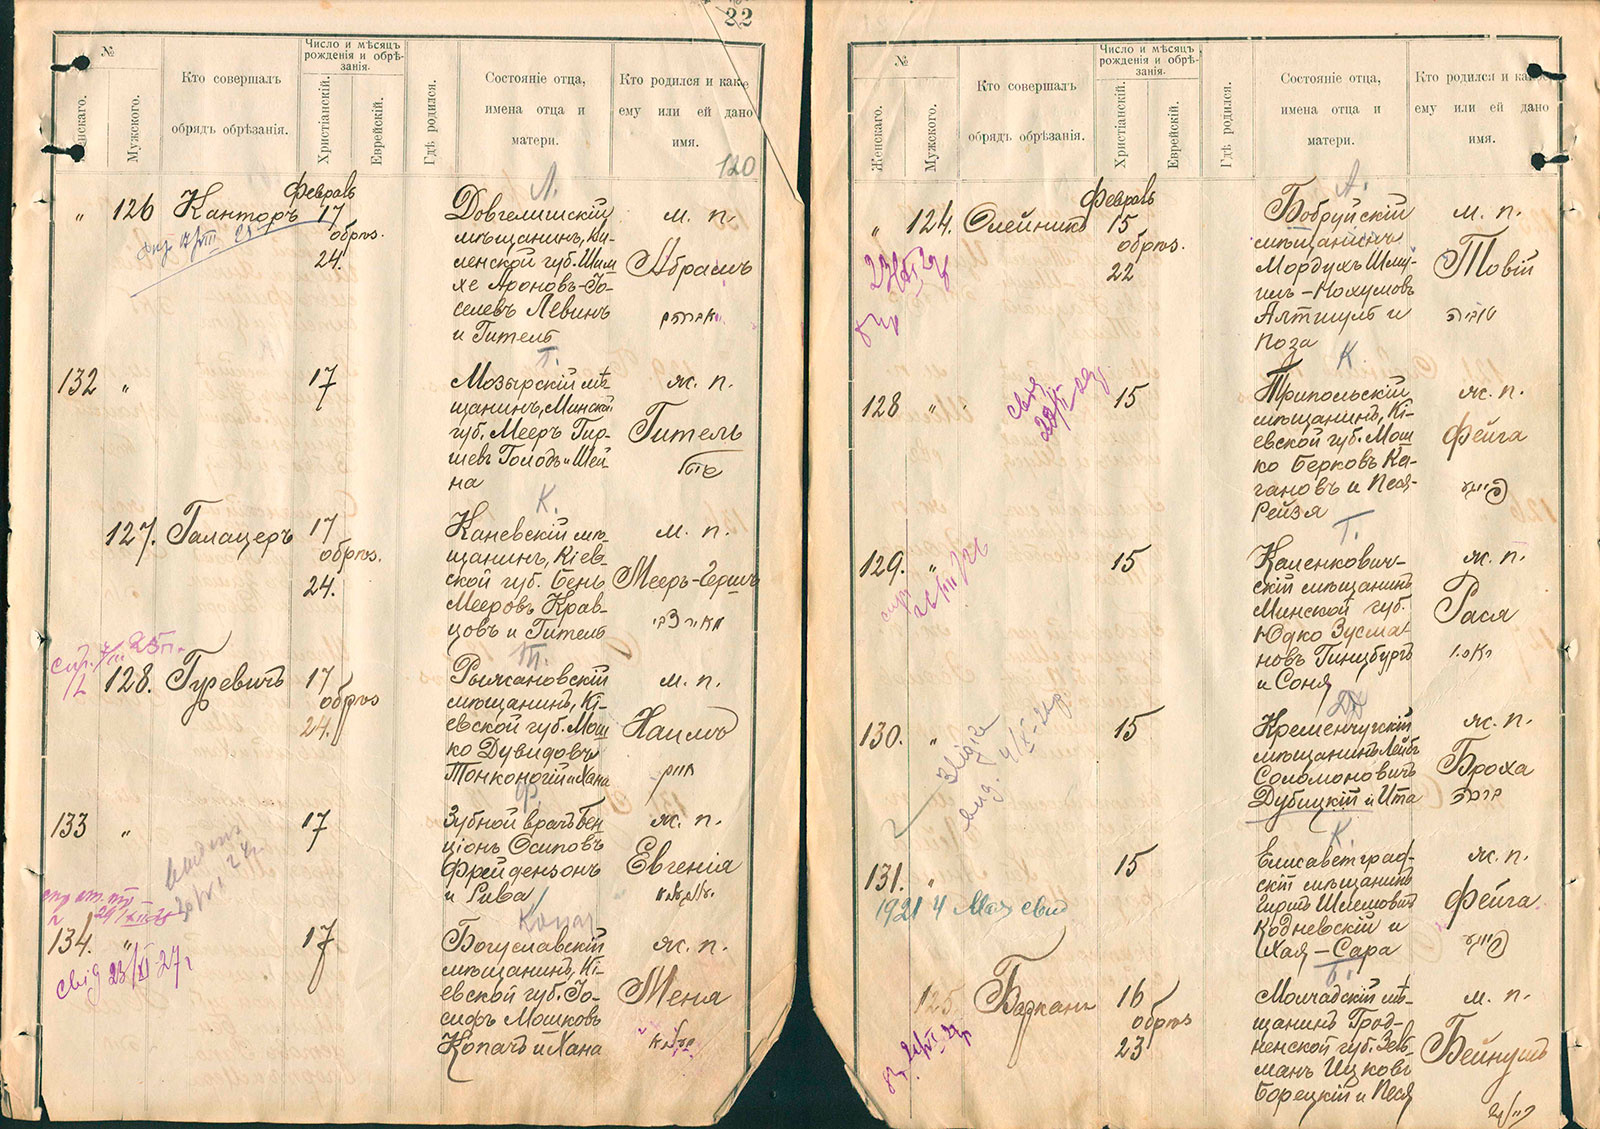 22
№
Женскаго.
Мужского.
Кто совершалъ
обрядъ обрѣзанія.
Число и мѣсяцъ
рожденія и обрѣ-
занія.
Христіанскій.
Еврейскій.
Гдѣ родился.
Состояніе отца,
имена отца и
матери.
Кто родился и какое
ему или ей дано
имя.
120
Л.
" 126 Канторъ
Февраль
17
обрѣз.
24.
Довгелишскій
мѣщанинъ, Ви-
ленской губ. Шлм
хе Ароновъ-Іо-
селевъ Левинъ
и Гитель
м. п.
Абрамъ
Г.
132 "
17
Мозырскій мѣ-
щанинъ, Минской
губ. Мееръ Гир-
шевъ Голодъ и Шей-
на
ж. п.
Гитель
К.
127. Галацеръ
17
обрѣз.
24.
Каневскій мѣ-
щанинъ, Кіев-
ской губ. Бень
Мееровъ Крав-
цовъ и Гитель
м. п.
Мееръ-Гершъ
Т.
128. Гуревичъ
17
обрѣз
24.
Рыжановскій
мѣщанинъ, Кі-
евской губ. Мош
ко Дувидовъ
Тонконогій и Хана
м. п.
Хаимъ
Ф.
133 "
17
Зубной врачъ Бен
ціонъ Осиповъ
Фрейденьонъ
и Рива
ж. п.
Евгенія
Копач
134. "
свід 23/XI 27 г
17
Богуславскій
мѣщанинъ, Кі-
евской губ. Іо-
сифъ Мошковъ
Копачъ и Хана
ж. п.
Меня
№
Женскаго.
Мужского.
Кто совершалъ
обрядъ обрѣзанія.
Число и мѣсяцъ
рожденія и обрѣ-
занія.
Христіанскій.
Еврейскій.
Гдѣ родился.
Состояніе отца,
имена отца и
матери.
Кто родился и какое
ему или ей дано
имя.
А.
" 124. Олейникъ
Февраль
15
обрѣз.
22
Бобруйскій
мѣщанинъ
Мордухъ Шму-
иль-Нохумовъ
Алтшуль и
Поза
м. п.
Товій
טוביה
К
128 "
15
Трипольскій
мѣщанинъ, Кі-
евской губ. Мош
ко Берковъ Ка-
гановъ и Песя-
Рейзя
ж. п.
Фейга
פייגע
Г.
129. "
15
Каленкович-
скій мѣщанинъ
Минской губ.
Юдко Зусма-
новъ Гинзбургъ
и Соня
ж. п.
Рася
Д
130. "
15
Кременчугскій
мѣщанинъ Лейбъ
Соломоновичъ
Дубицкій и Ита
ж. п.
Броха
ברכה
К.
131. "
1921 4 Мая
15
Елисаветград-
скій мѣщанинъ
Гиршъ Шлемовичъ
Кодневскій и
Хая-Сара
ж. п.
Фейга
פייגע
Б.
125 Барканъ
16
обрѣз
23
Молчадскій мѣ-
щанинъ Грод-
ненской губ. Зель
манъ Ицковъ
Борецкій и Песя
м. п.
Бейнушъ